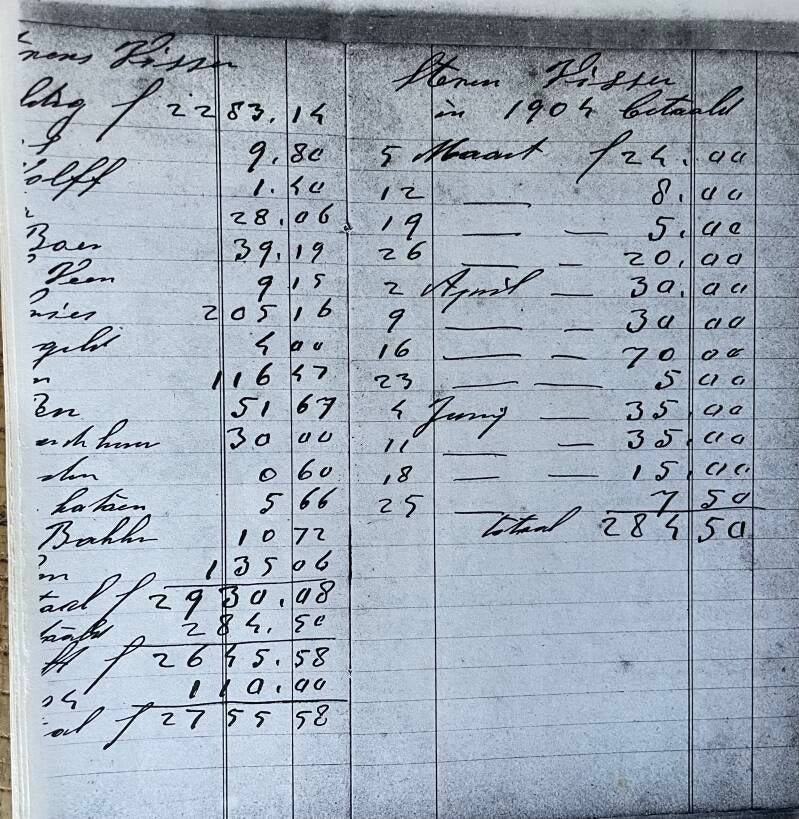 Visser
f 2283.14
9.80
olff 1.40
28.06
Boer 39.19
Veen 9 15
205 16
geld 4 00
n 116 47
51 67
30 00
0 60
5 66
10 72
135 06
f 2930.08
284.50
f 2645.58
110.00
f 2755 58
Visser
in 1904 betaald
5 Maart f 24.00
12 — 8.00
19 — — 5.00
26 — — 20.00
2 April — 30.00
9 — — 30 00
16 — — 70 00
23 — — 5 00
4 Junij — 35.00
11 — — 35.00
18 — — 15.00
25 — 7 50
totaal 284 50